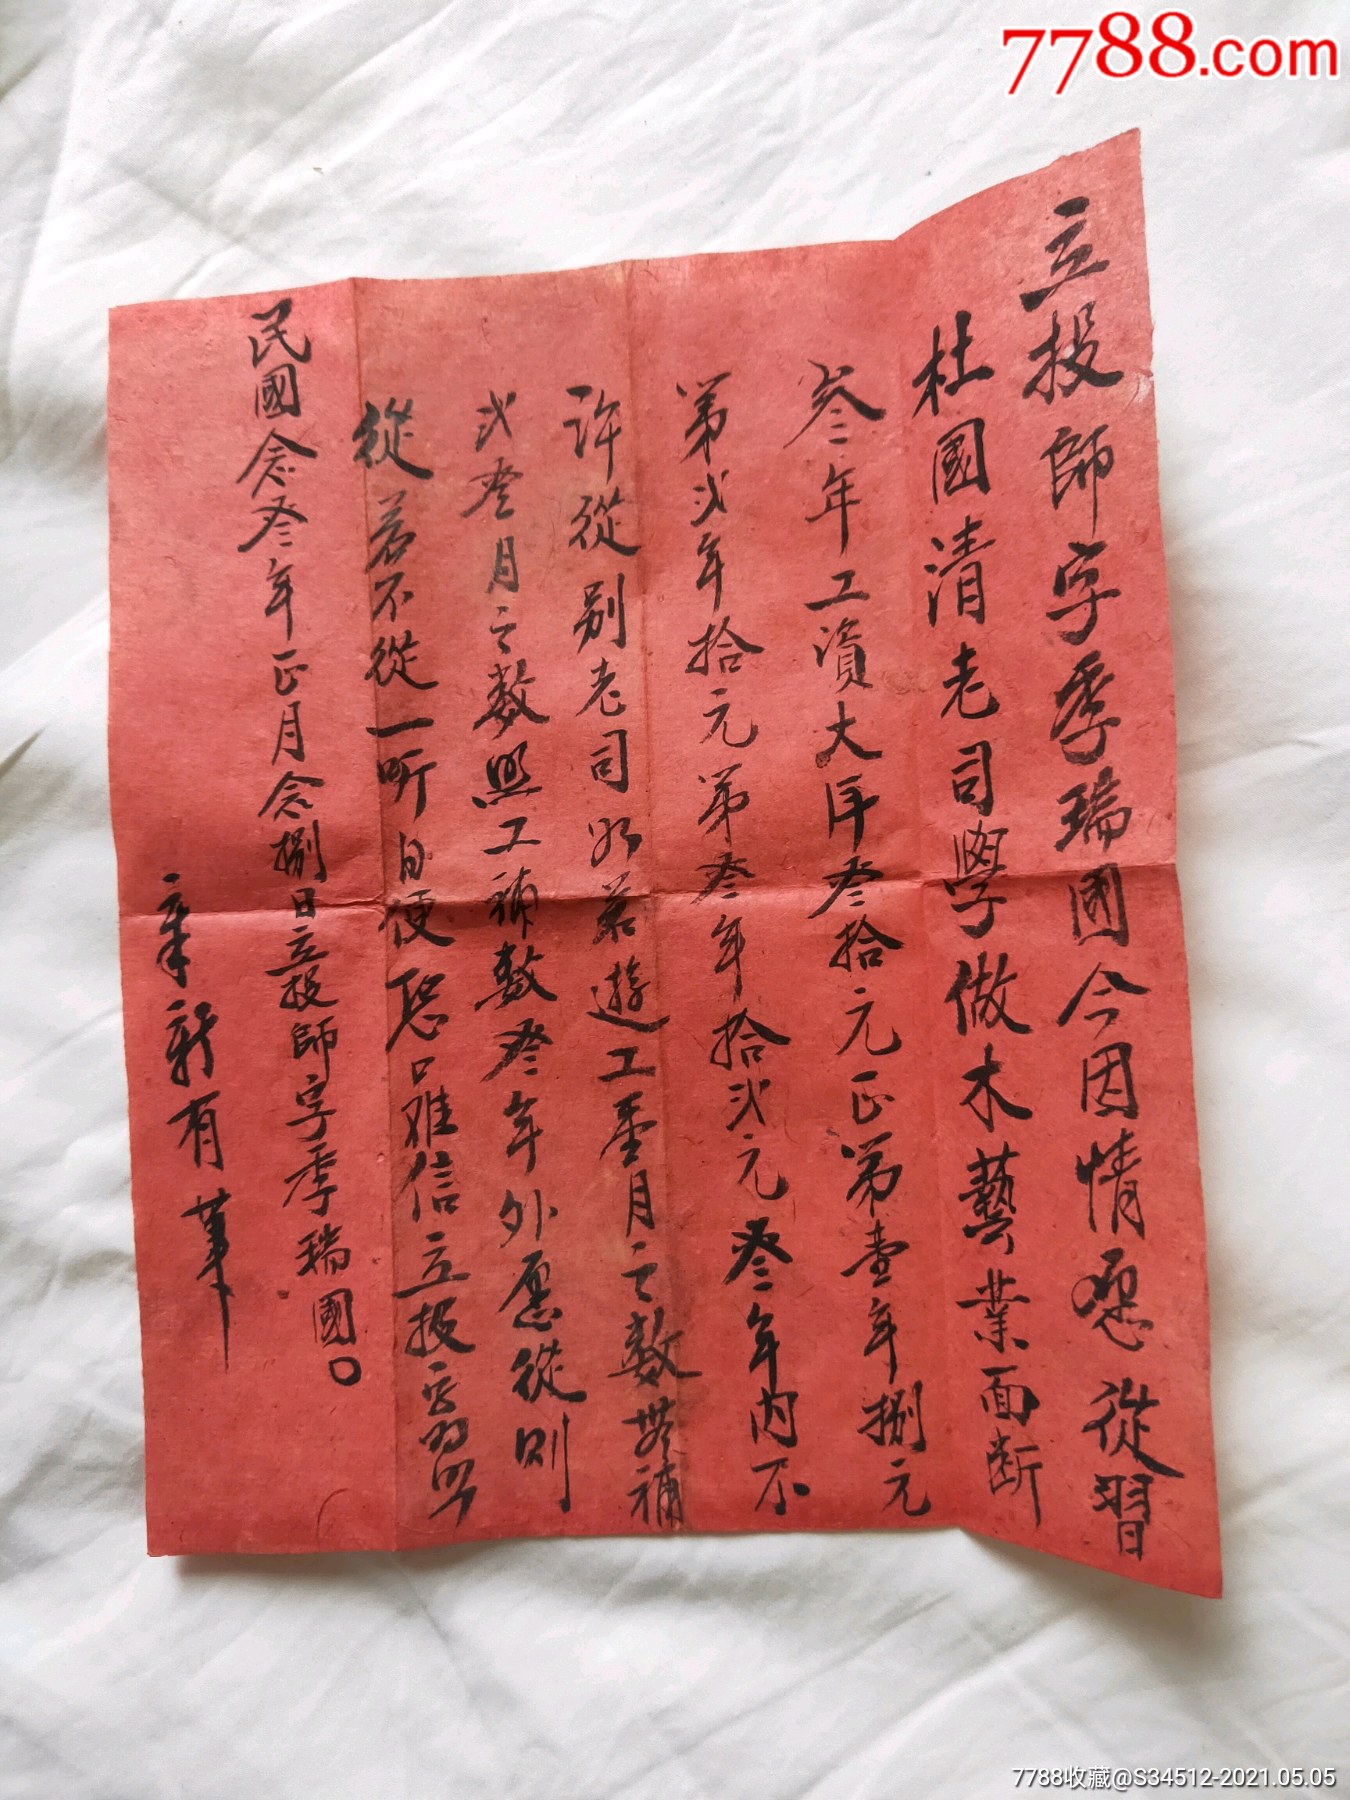 7788.com
立投師字季瑞國今因情愿從習
杜國清老司學做木藝業面断
叁年工資大洋叁拾元正第壹年捌元
第弍年拾元第叁年拾弍元叁年内不
許從别老司如若遊工壹月之數無補
弍叁月之數照工補數叁年外愿從则
從若不從一听自便恐口难信立投字為照
民國念叁年正月念捌日立投師字季瑞國〇
章新有筆
7788收藏@S34512-2021.05.05